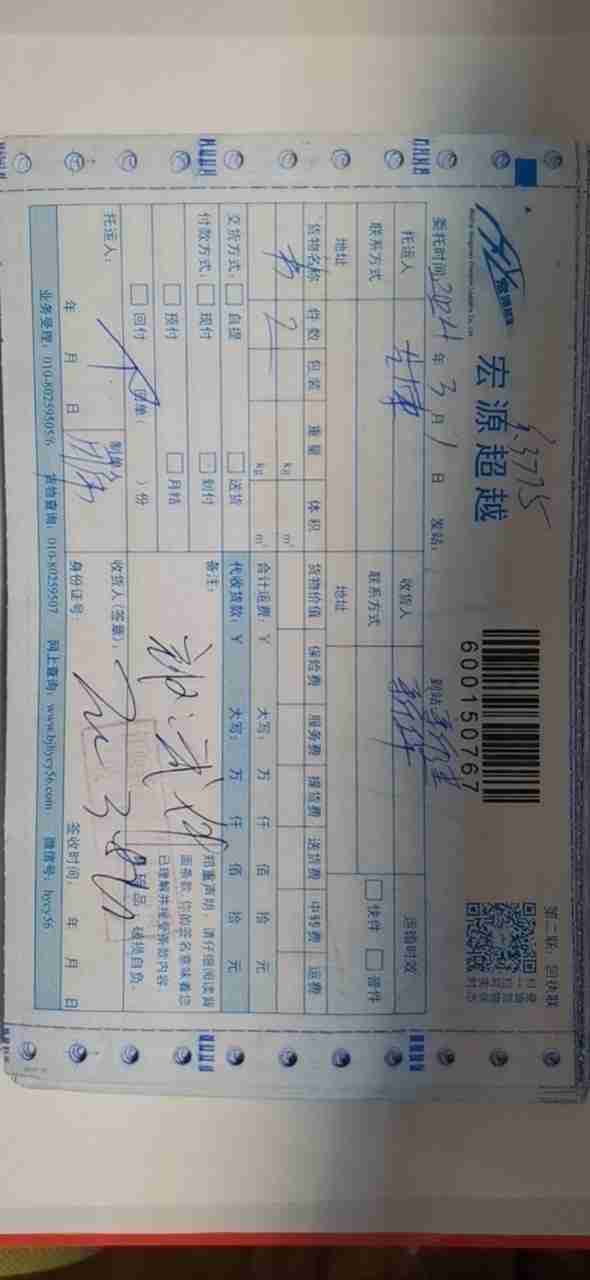 宏源超越
600150767
第二联：回执联
委托时间：2024年3月1日 发站： 到站：新华
托运人 收货人 新华 运输时效
联系方式 联系方式 快件 普件
地址 地址
货物名称 件数 包装 重量 体积 货物价值 保险费 服务费 提货费 送货费 中转费 运费
书 2 kg m³
kg m³ 合计运费：￥ 大写： 万 仟 佰 拾 元
交货方式： 自提 送货 代收货款：￥ 大写： 万 仟 佰 拾 元
付款方式： 现付 到付 备注： 郑重声明，请仔细阅读背
预付 月结 面条款，您的签名意味着您
已理解并接受条款内容。
回付 ）份 破损自负。
托运人： 制单： 收货人(签章)：
年 月 日 身份证号： 签收时间： 年 月 日
业务受理：010-80259505/6 货物查询：010-80259507 网上查询：www.bjhycy56.com 微信号：hycy56